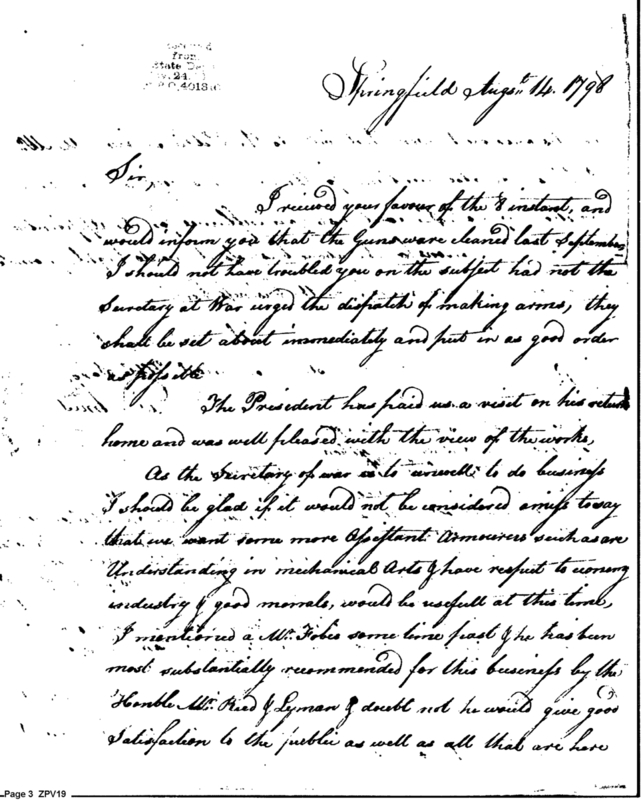 from
State De
4013
Springfield Augst. 14. 1798
Sir,
I receved your favour of the 8 instant, and
would inform you that the Guns ware cleaned last September
I should not have troubled you on the subject had not the
Secretary at War urged the dispatch of making arms, they
shall be set about immediately and put in as good order
as possible
The President has paid us a visit on his return
home and was well pleased with the view of the works,
As the Secretary of war is to unwell to do business
I should be glad if it would not be considered amiss to say
that we want some more Assestant Armourers such as are
Understanding in mechanical Arts & have respect to
industry & good morrals, would be usefull at this time,
I mentioned a Mr. Fobes some time past & he has been
most substantially recommended for this business by the
Honble Mr. Reed & Lyman & doubt not he would give good
Satisfaction to the public as well as all that are here
Page 3 ZPV19